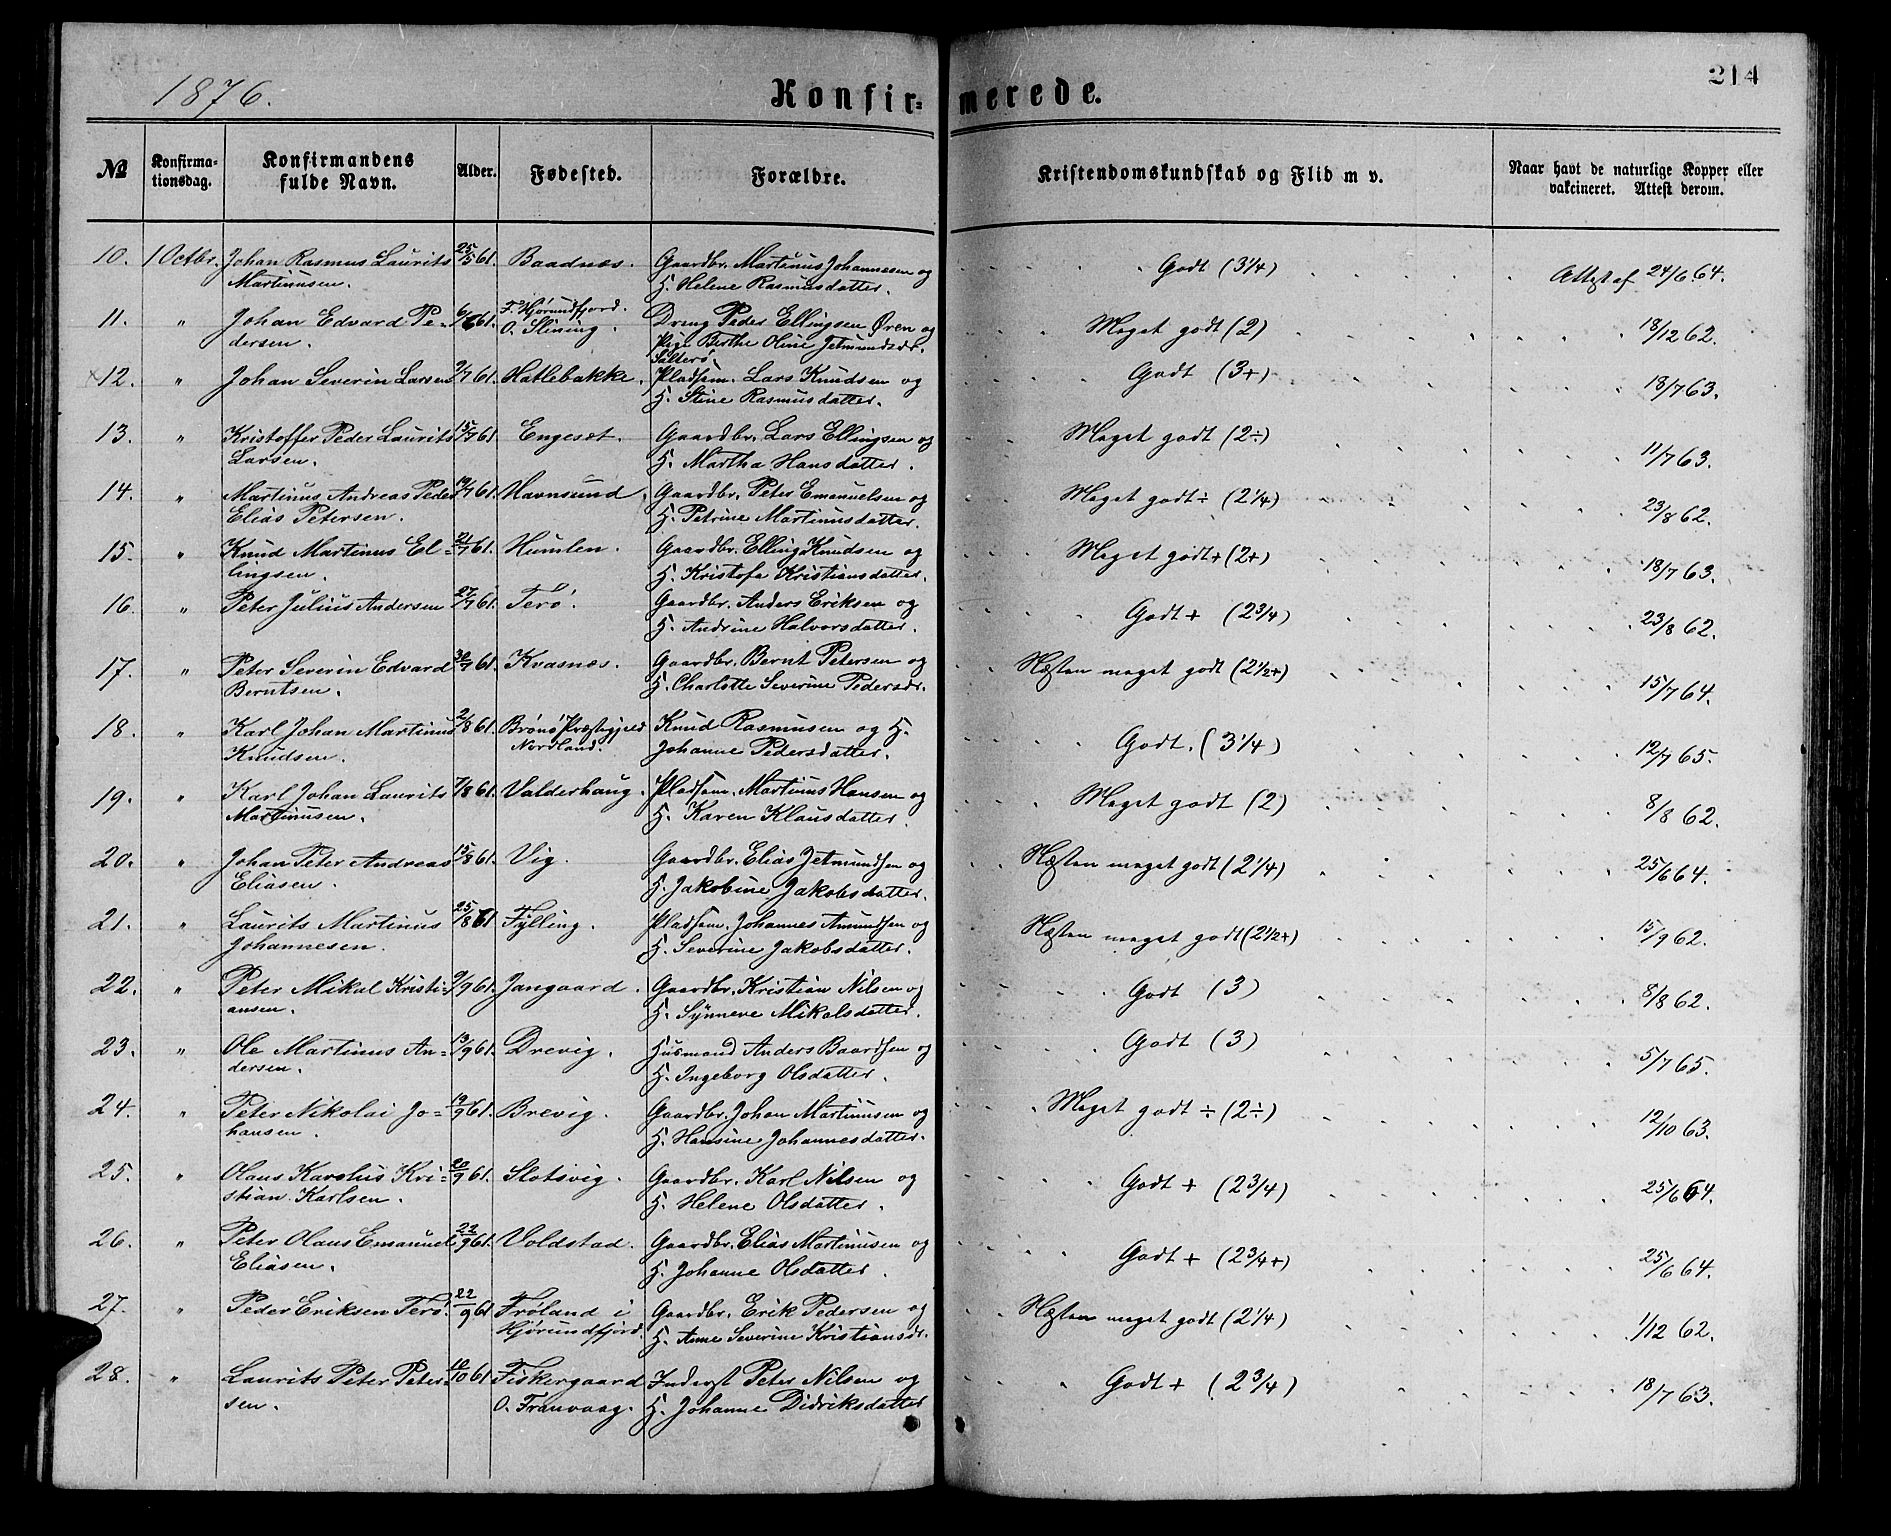 1876.
Konfir=merede.
214
No
Konfirma-tionsdag.
Konfirmandens fulde Navn.
Alder.
Fødested.
Forældre.
Kristendomskundskab og Flid m v.
Naar havt de naturlige Kopper eller vakcineret. Attest derom.
10. 1 Octbr. Johan Rasmus Laurits 25/5 61. Baadnæs. Gaardbr. Martinus Johannesen og Godt (3 1/4) Attest af 24/6 64.
Martinusen. H. Helene Rasmusdatter.
11. " Johan Edvard Pe- 6/6 61. F. Hjørundfjord. Dreng Peder Ellingsen Øren og Meget godt (2) 18/12 62.
dersen. O. Slining. Pige Berthe Oline Jetmundsdr.
Salterø.
12. " Johan Severin Larsen 9/7 61. Hatlebakke. Pladsm. Lars Knudsen og Godt (3+) 18/7 63.
H. Stine Rasmusdatter.
13. " Kristoffer Peder Laurits 15/7 61. Engeset. Gaardbr. Lars Ellingsen og Meget godt (2÷) 11/7 63.
Larsen. H. Martha Hansdatter.
14. " Martinus Andreas Peder 19/7 61. Havnsund. Gaardbr. Peter Emanuelsen og Meget godt ÷ (2 1/4) 23/8 62.
Elias Petersen. H. Petrine Martinusdatter.
15. " Knud Martinus El- 21/7 61. Humlen. Gaardbr. Elling Knudsen og Meget godt + (2+) 18/7 63.
lingsen. H. Kristofa Kristiansdatter.
16. " Peter Julius Andersen 27/7 61. Terø. Gaardbr. Anders Eriksen og Godt + (2 3/4) 23/8 62.
H. Andrine Halvorsdatter.
17. " Peter Severin Edvard 30/7 61. Kvasnæs. Gaardbr. Bernt Petersen og Næsten meget godt (2 1/2+) 15/7 64.
Berntsen. H. Charlotte Severine Pedersdr.
18. " Karl Johan Martinus 2/8 61. Brønø Præstegjeld Knud Rasmusen og H. Godt. (3 1/4) 12/7 65.
Knudsen. Nordland. Johanne Pedersdatter.
19. " Karl Johan Laurits 7/8 61. Valderhaug. Pladsm. Martinus Hansen og Meget godt (2) 8/8 62.
Martinusen. H. Karen Klausdatter.
20. " Johan Peter Andreas 15/8 61. Vig. Gaardbr. Elias Jetmundsen og Næsten meget godt (2 1/4) 25/6 64.
Eliasen. H. Jakobine Jakobsdatter.
21. " Laurits Martinus 25/8 61 Fylling. Pladsm. Johannes Amundsen og Næsten meget godt (2 1/2+) 15/9 62.
Johannesen. H. Severine Jakobsdatter.
22. " Peter Mikal Kristi- 9/9 61. Jangaard. Gaardbr. Kristian Nilsen og Godt (3) 8/8 62.
ansen. H. Synneve Mikalsdatter.
23. " Ole Martinus An- 13/9 61. Drevig. Husmand Anders Baardsen og Godt (3) 5/7 65.
dersen. H. Ingeborg Olsdatter.
24. " Peter Nikolai Jo- 19/9 61. Brevig. Gaardbr. Johan Martinusen og Meget godt ÷ (2÷) 12/10 63.
hansen. H. Hansine Johannesdatter.
25. " Olaus Karolus Kri- 20/9 61. Slotsvig. Gaardbr. Karl Nilsen og Godt + (2 3/4) 25/6 64.
stian Karlsen. H. Helene Olsdatter.
26. " Peter Olaus Emanuel 22/9 61. Voldstad. Gaardbr. Elias Martinusen og Godt + (2 3/4+) 25/6 64.
Eliasen. H. Johanne Olsdatter.
27. " Peder Eriksen Terø. 22/9 61 Frøland i Gaardbr. Erik Pedersen og Næsten meget godt (2 1/4) 1/12 62.
Hjørundfjord. H. Anne Severine Kristiansdr.
28. " Laurits Peter Peter- 10/10 61 Fiskergaard Inderst Peter Nilsen og Godt + (2 3/4) 18/7 63.
sen. O. Franvaag. H. Johanne Didriksdatter